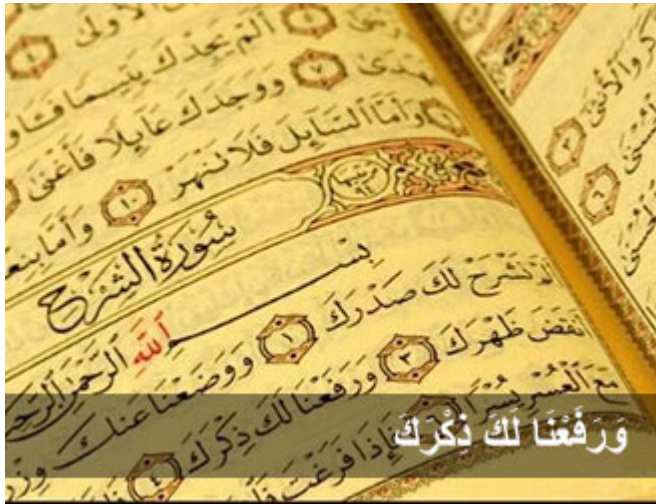 ٱلْأُولَىٰ
أَلَمْ يَجِدْكَ يَتِيمًا
٧ وَوَجَدَكَ عَآئِلًا فَأَغْنَىٰ
وَأَمَّا ٱلسَّآئِلَ فَلَا تَنْهَرْ ١٠ وَأَمَّا
سُورَةُ الشَّرْحِ
بِسْمِ ٱللَّهِ ٱلرَّحْمَٰنِ ٱلرَّحِيمِ
أَلَمْ نَشْرَحْ لَكَ صَدْرَكَ ١ وَوَضَعْنَا عَنكَ
أَنقَضَ ظَهْرَكَ ٣ وَرَفَعْنَا لَكَ ذِكْرَكَ ٤
مَعَ ٱلْعُسْرِ يُسْرًا ٦ فَإِذَا فَرَغْتَ
وَٱلْأُنثَىٰ ٣
وَرَفَعْنَا لَكَ ذِكْرَكَ